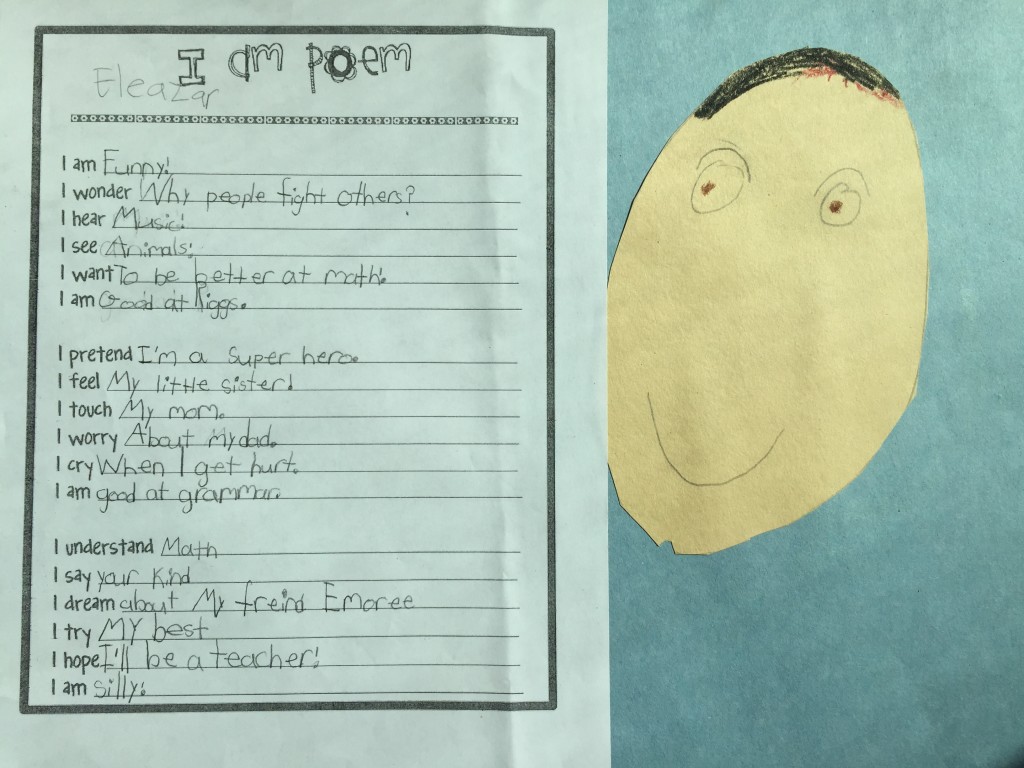 I am poem
Eleazar
I am Funny!
I wonder Why people fight others?
I hear Music!
I see Animals!
I want To be better at math!
I am Good at Riggs.
I pretend I'm a super hero.
I feel My little sister!
I touch My mom.
I worry About my dad.
I cry When I get hurt.
I am good at grammar.
I understand Math
I say your kind
I dream about My freind Emoree
I try My best
I hope I'll be a teacher!
I am silly!